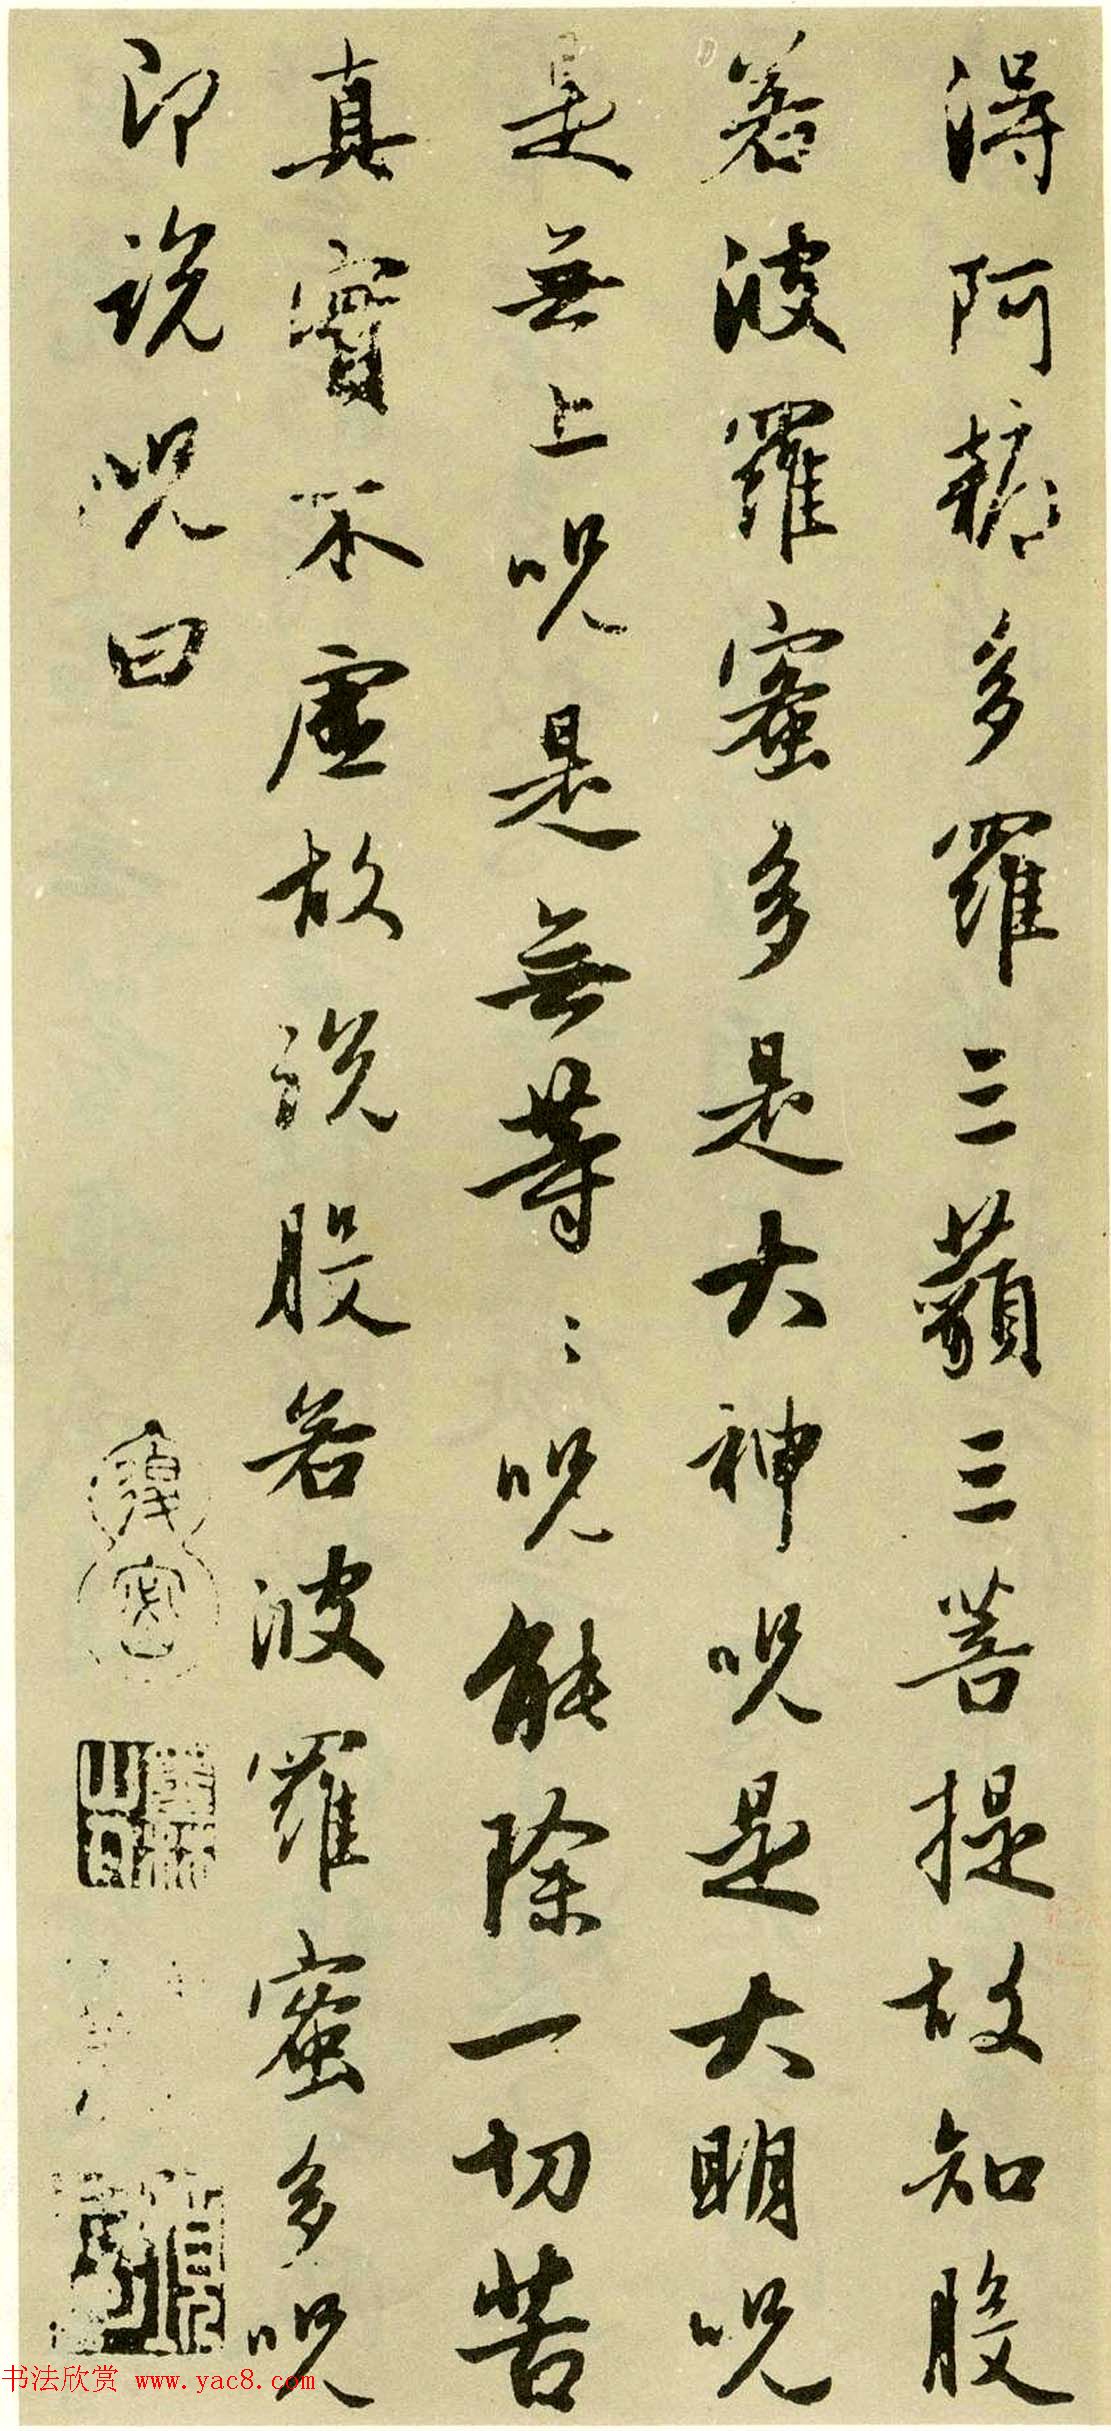 得阿耨多羅三藐三菩提故知般
若波羅蜜多是大神呪是大明呪
是無上呪是無等〻呪能除一切苦
真實不虛故說般若波羅蜜多呪
即說呪曰
书法欣赏 www.yac8.com